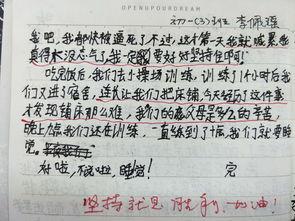 OPENUPOURDREAM
277-(3)班 李佩瑶
我吧,我都快被逼死了不过,这才第一天我就喊累我
真得太没志气了我一定要好好坚持住啊!
吃完饭后,我们去了操场训练,训练了1个小时后我
们又进了宿舍,连长让我们把床铺,今天经历了这件事
才发现铺床那么难,我们的爸父母是多么的辛苦,
晚上,像我们还在训练,一直练到了十点,我们就要睡
觉。
好啦,不说啦,睡觉!完
坚持就是胜利,加油!